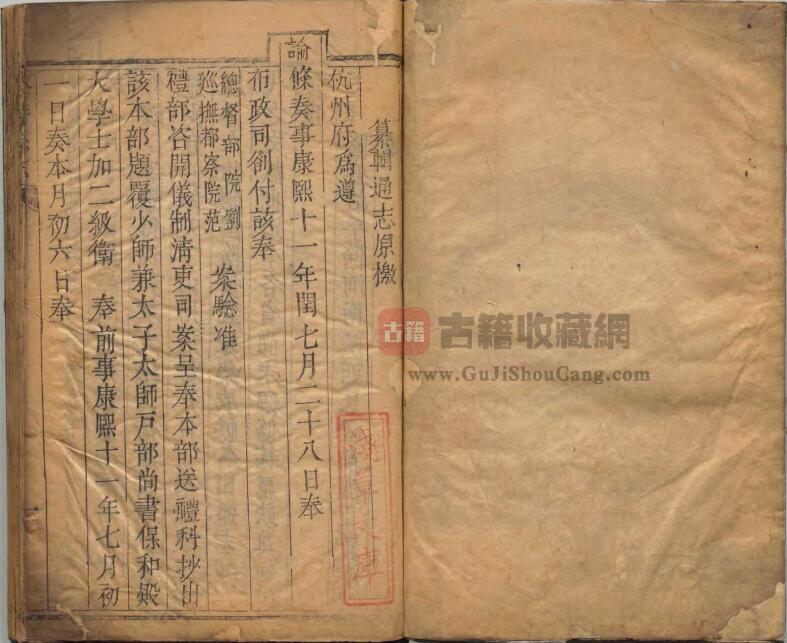 纂輯通志原檄
杭州府為遵
諭條奏事康熙十一年閏七月二十八日奉
布政司劄付該奉
總督部院劉
巡撫都察院范
案驗准
禮部咨開儀制清吏司案呈奉本部送禮科抄出
該本部題覆少師兼太子太師戶部尚書保和殿
大學士加二級衛 奉前事康熙十一年七月初
一日奏本月初六日奉
淺草文庫
古籍
古籍收藏網
www.GuJiShouCang.com
一